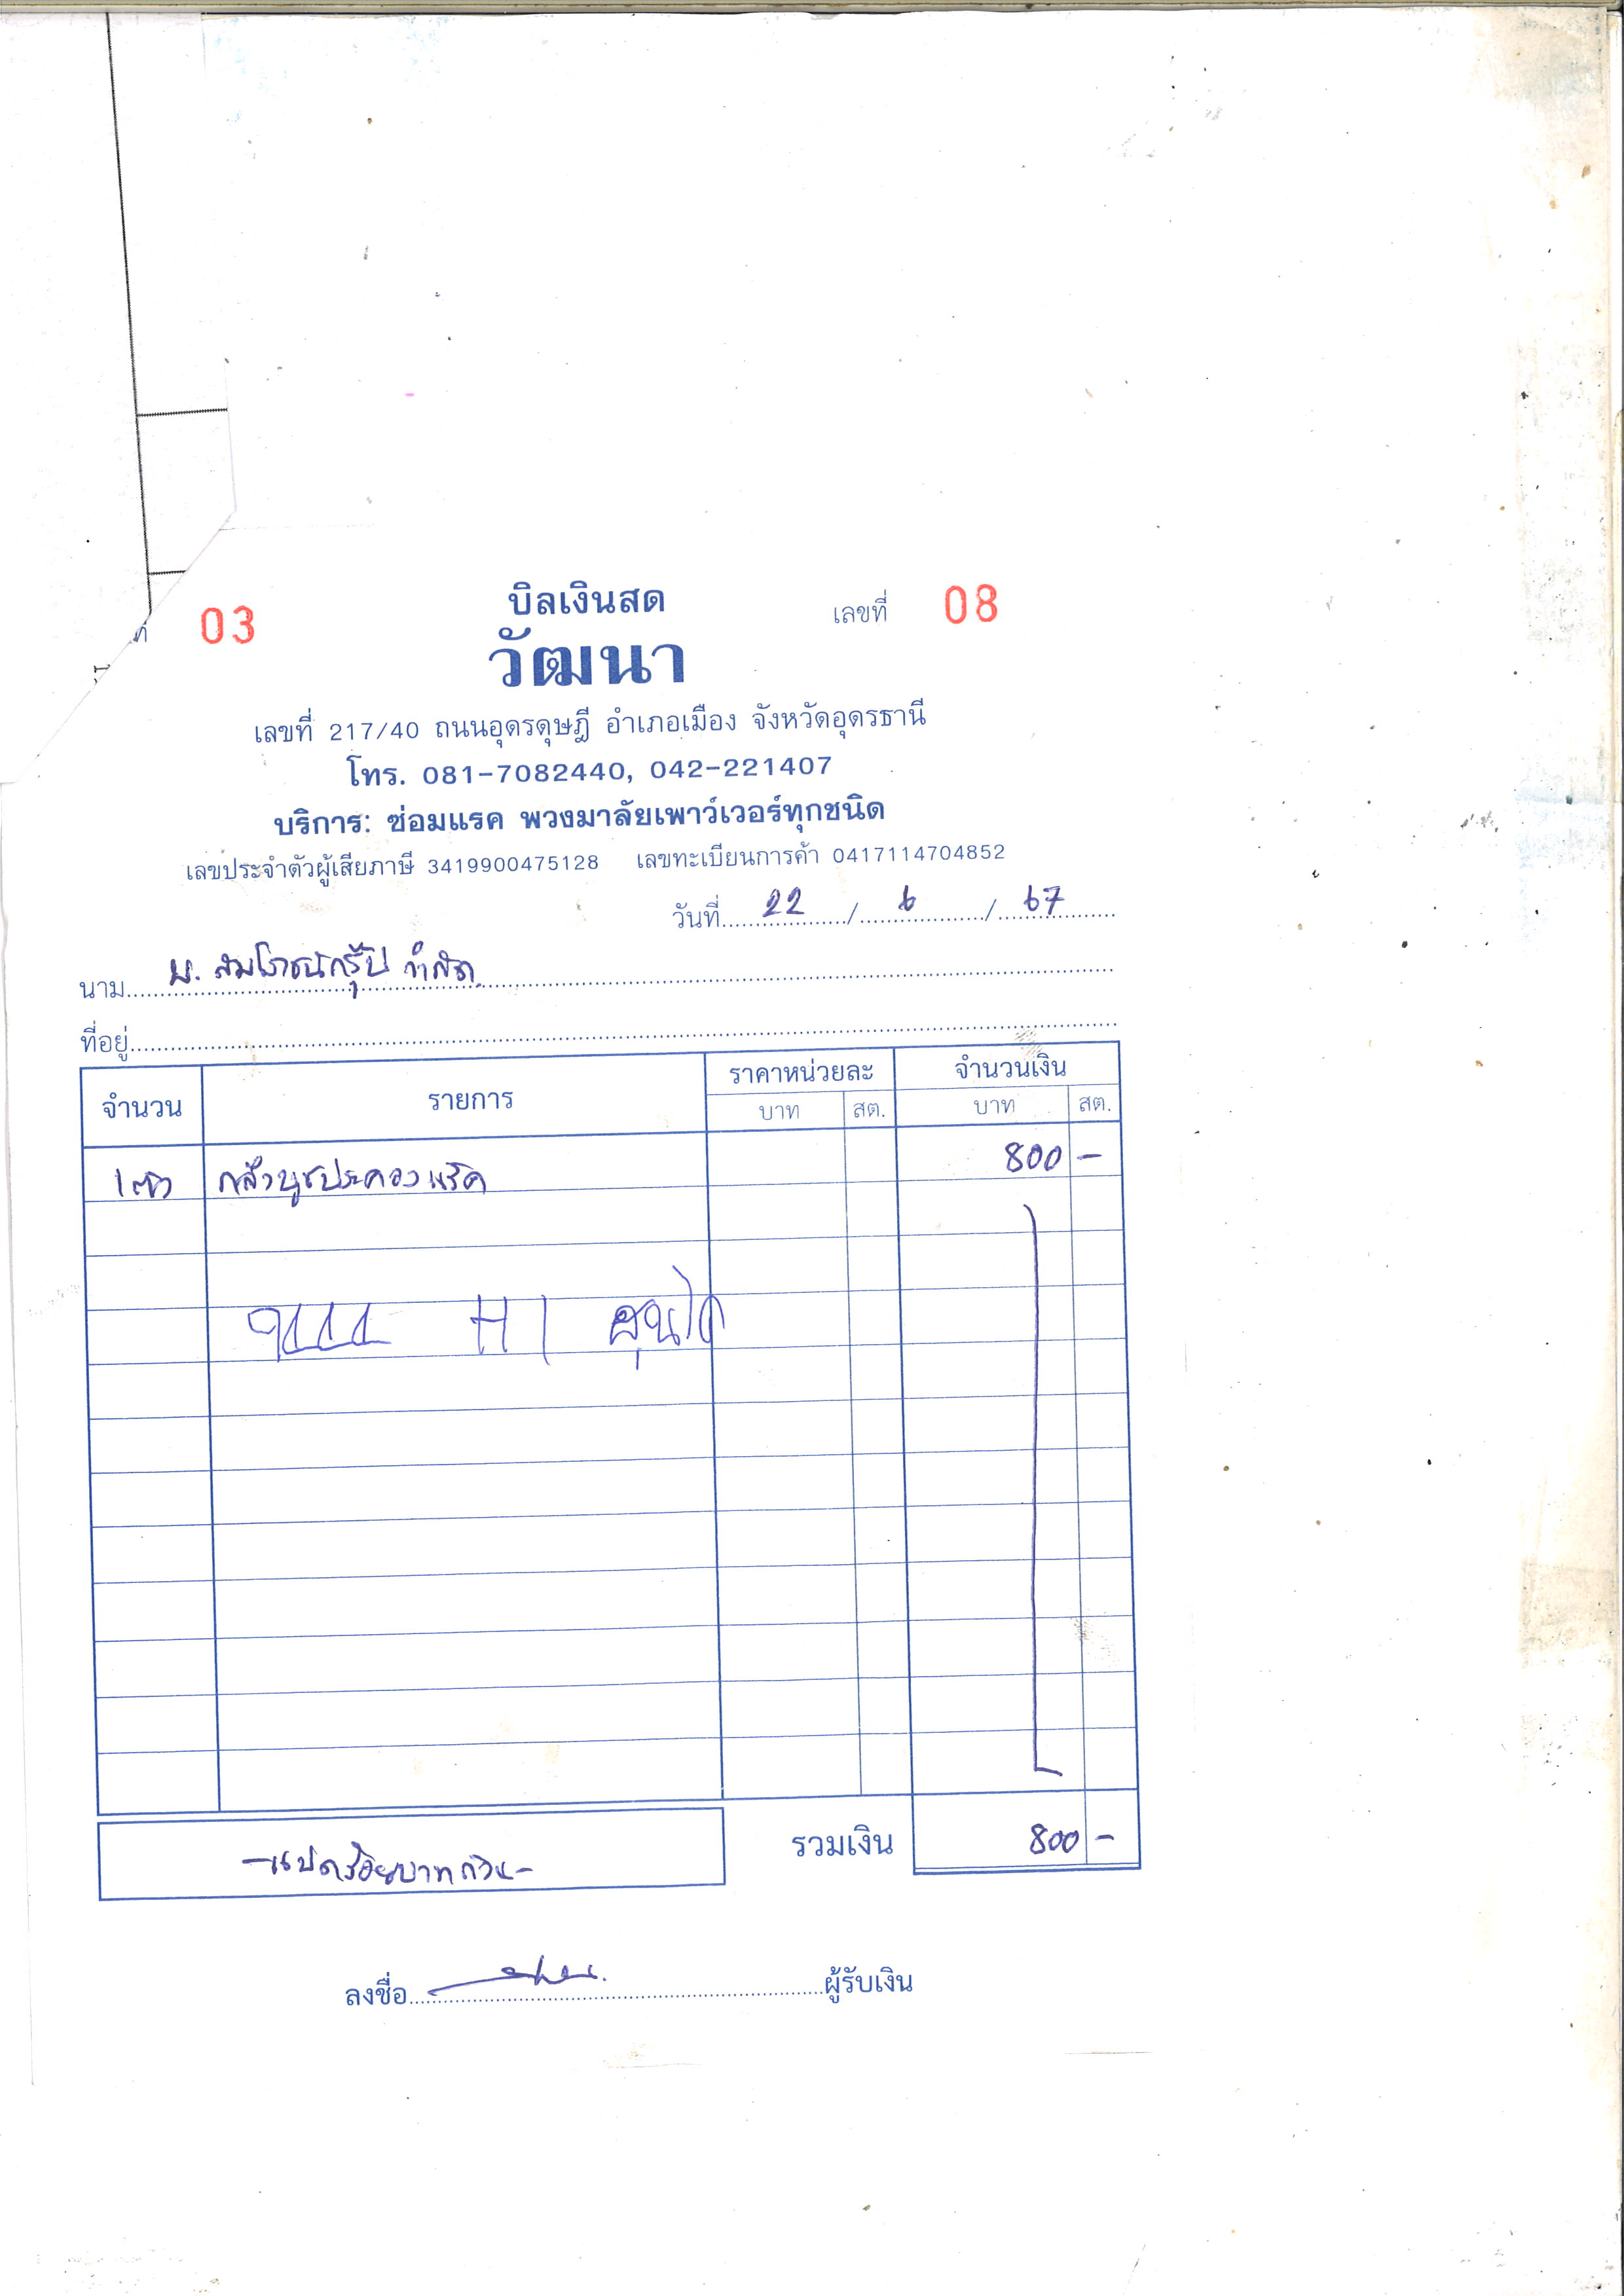 ที่ 03 บิลเงินสด เลขที่ 08
วัฒนา
เลขที่ 217/40 ถนนอุดรดุษฎี อำเภอเมือง จังหวัดอุดรธานี
โทร. 081-7082440, 042-221407
บริการ: ซ่อมแรค พวงมาลัยเพาว์เวอร์ทุกชนิด
เลขประจำตัวผู้เสียภาษี 3419900475128 เลขทะเบียนการค้า 0417114704852
วันที่ 22 / 6 / 67
นาม บ. สมโภชน์กรุ๊ป จำกัด
ที่อยู่
จำนวน รายการ ราคาหน่วยละ จำนวนเงิน
บาท สต. บาท สต.
1 ตัว กลึงบูชประคองแร็ค 800 -
H1
รวมเงิน 800 -
-แปดร้อยบาทถ้วน-
ลงชื่อ ผู้รับเงิน